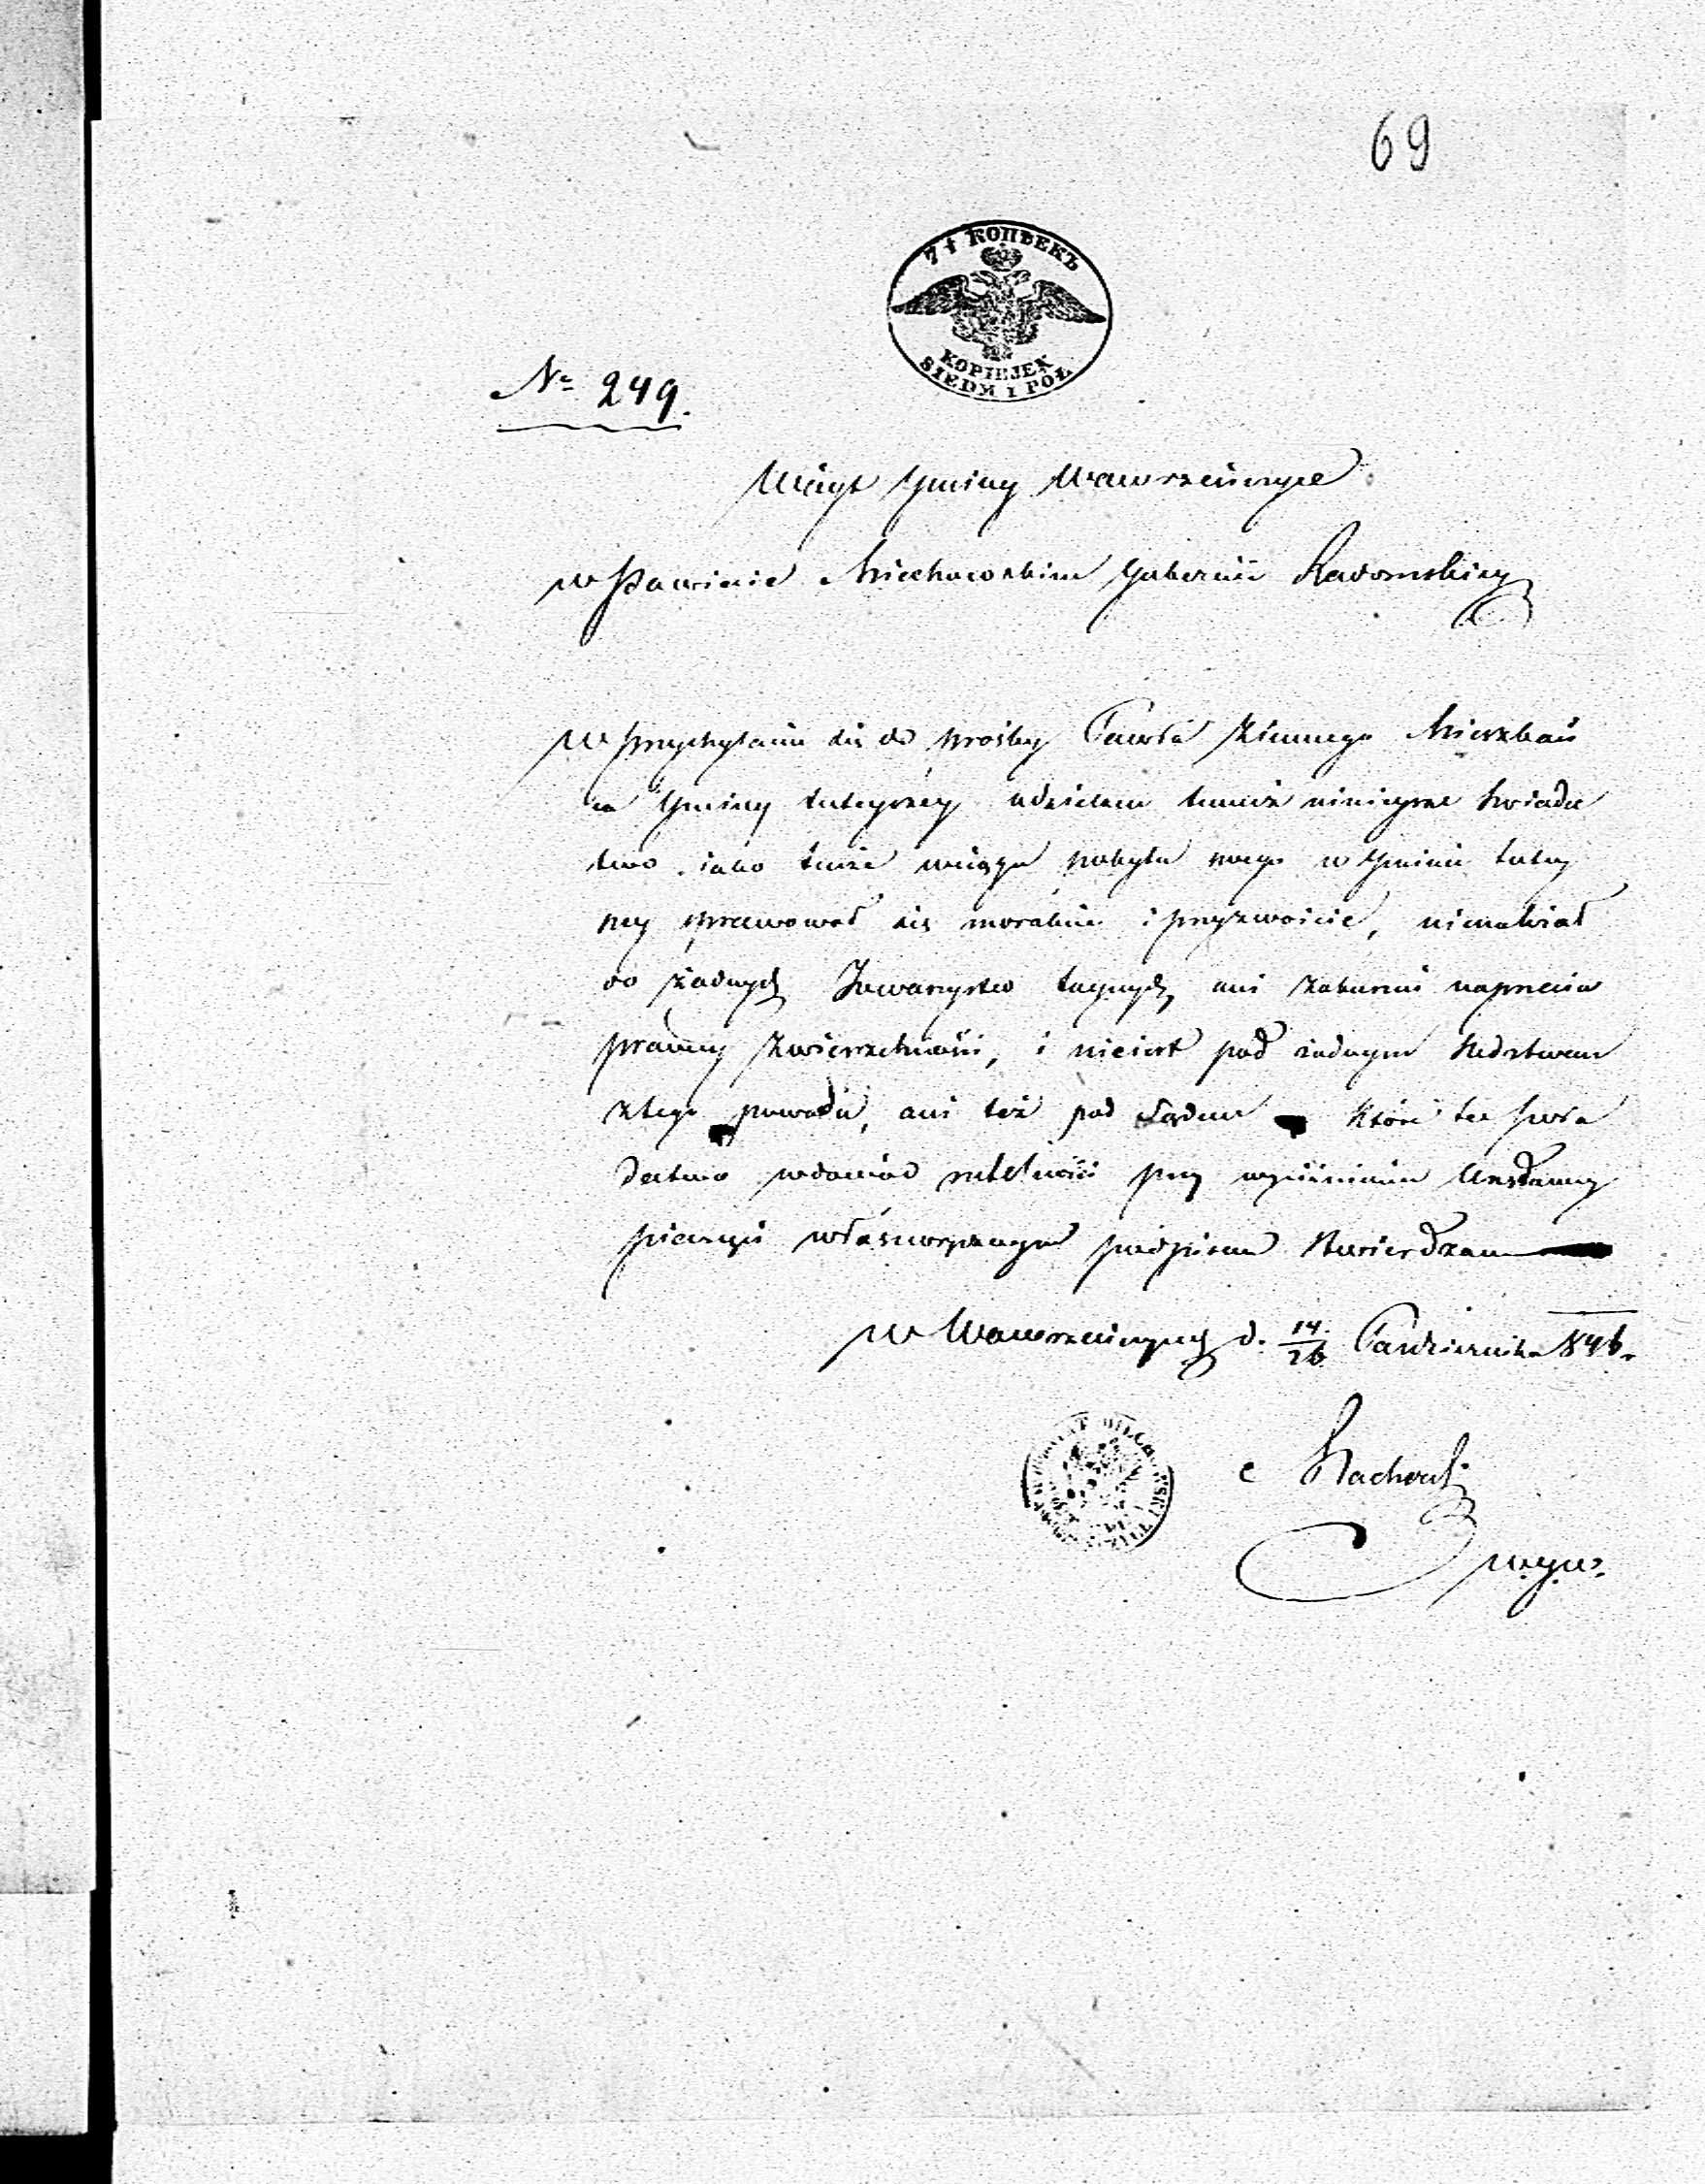 69
7½ КОПѢЕКЪ
KOPIEJEK
SIEDM I PÓŁ
Nr 249.
Wóyt Gminy Wawrzeńczyce
w Powiecie Miechowskim Gubernii Radomskiey
W przychylaniu się do prośby Pawła Zimnego Mieszkań
ca Gminy tuteyszey udzielam temuż ninieysze świade
two, iako tenże wciągu pobytu swego w Gminie tutey
szey sprawował się moralnie i przyzwoicie, nienależał
do żadnych Towarzystw taynych, ani zaburzeń naprzeciw
prawney Zwierzchności, i nieiest pod żadnym śledztwem
ztego powodu, ani też pod Sądem Które to świa
dectwo wdowód rzetelności przy wyciśnieniu Urzędowey
pieczęci własnoręcznym podpisem Stwierdzam
w Wawrzeńczycach d. 14/26 Październik 1846.